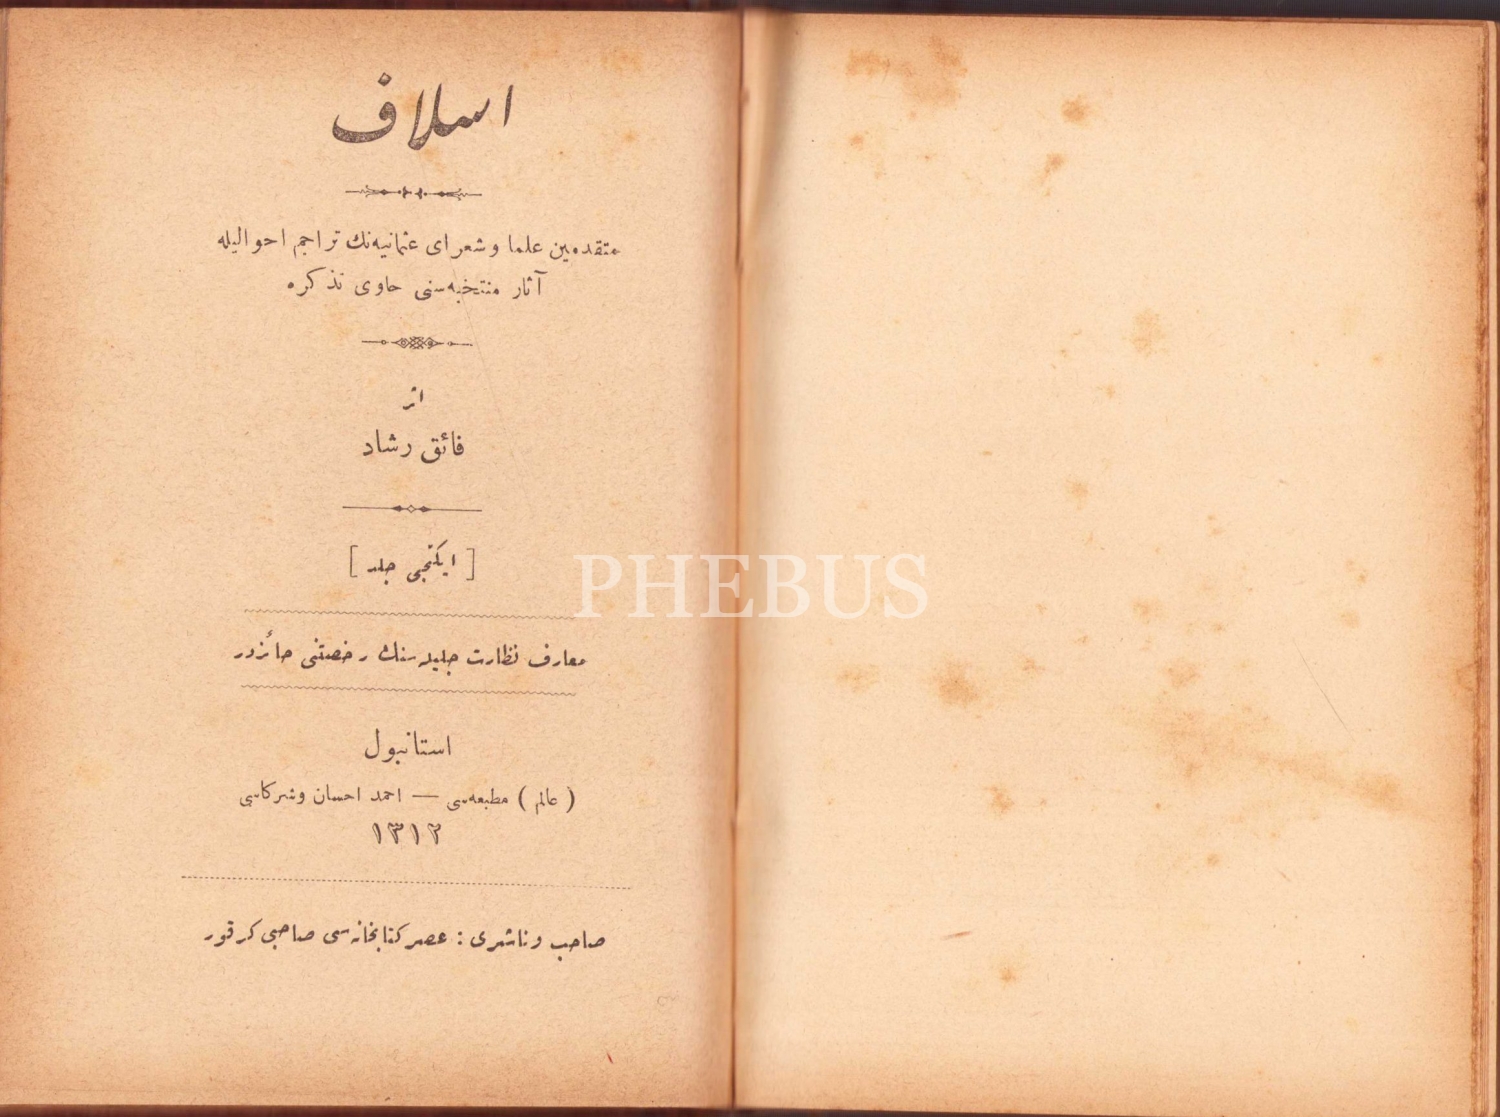 اسلاف
متقدمین علما وشعرای عثمانیه‌نك تراجم احوالیله
آثار منتخبه‌سنی حاوی تذكره
اثر
فائق رشاد
[ ایكنجی جلد ]
معارف نظارت جلیله‌سنك رخصتنی حائزدر
استانبول
( عالم ) مطبعه‌سی — احمد احسان وشركاسی
١٣١٢
صاحب وناشری : عصر كتابخانه‌سی صاحبی كرقور
PHEBUS